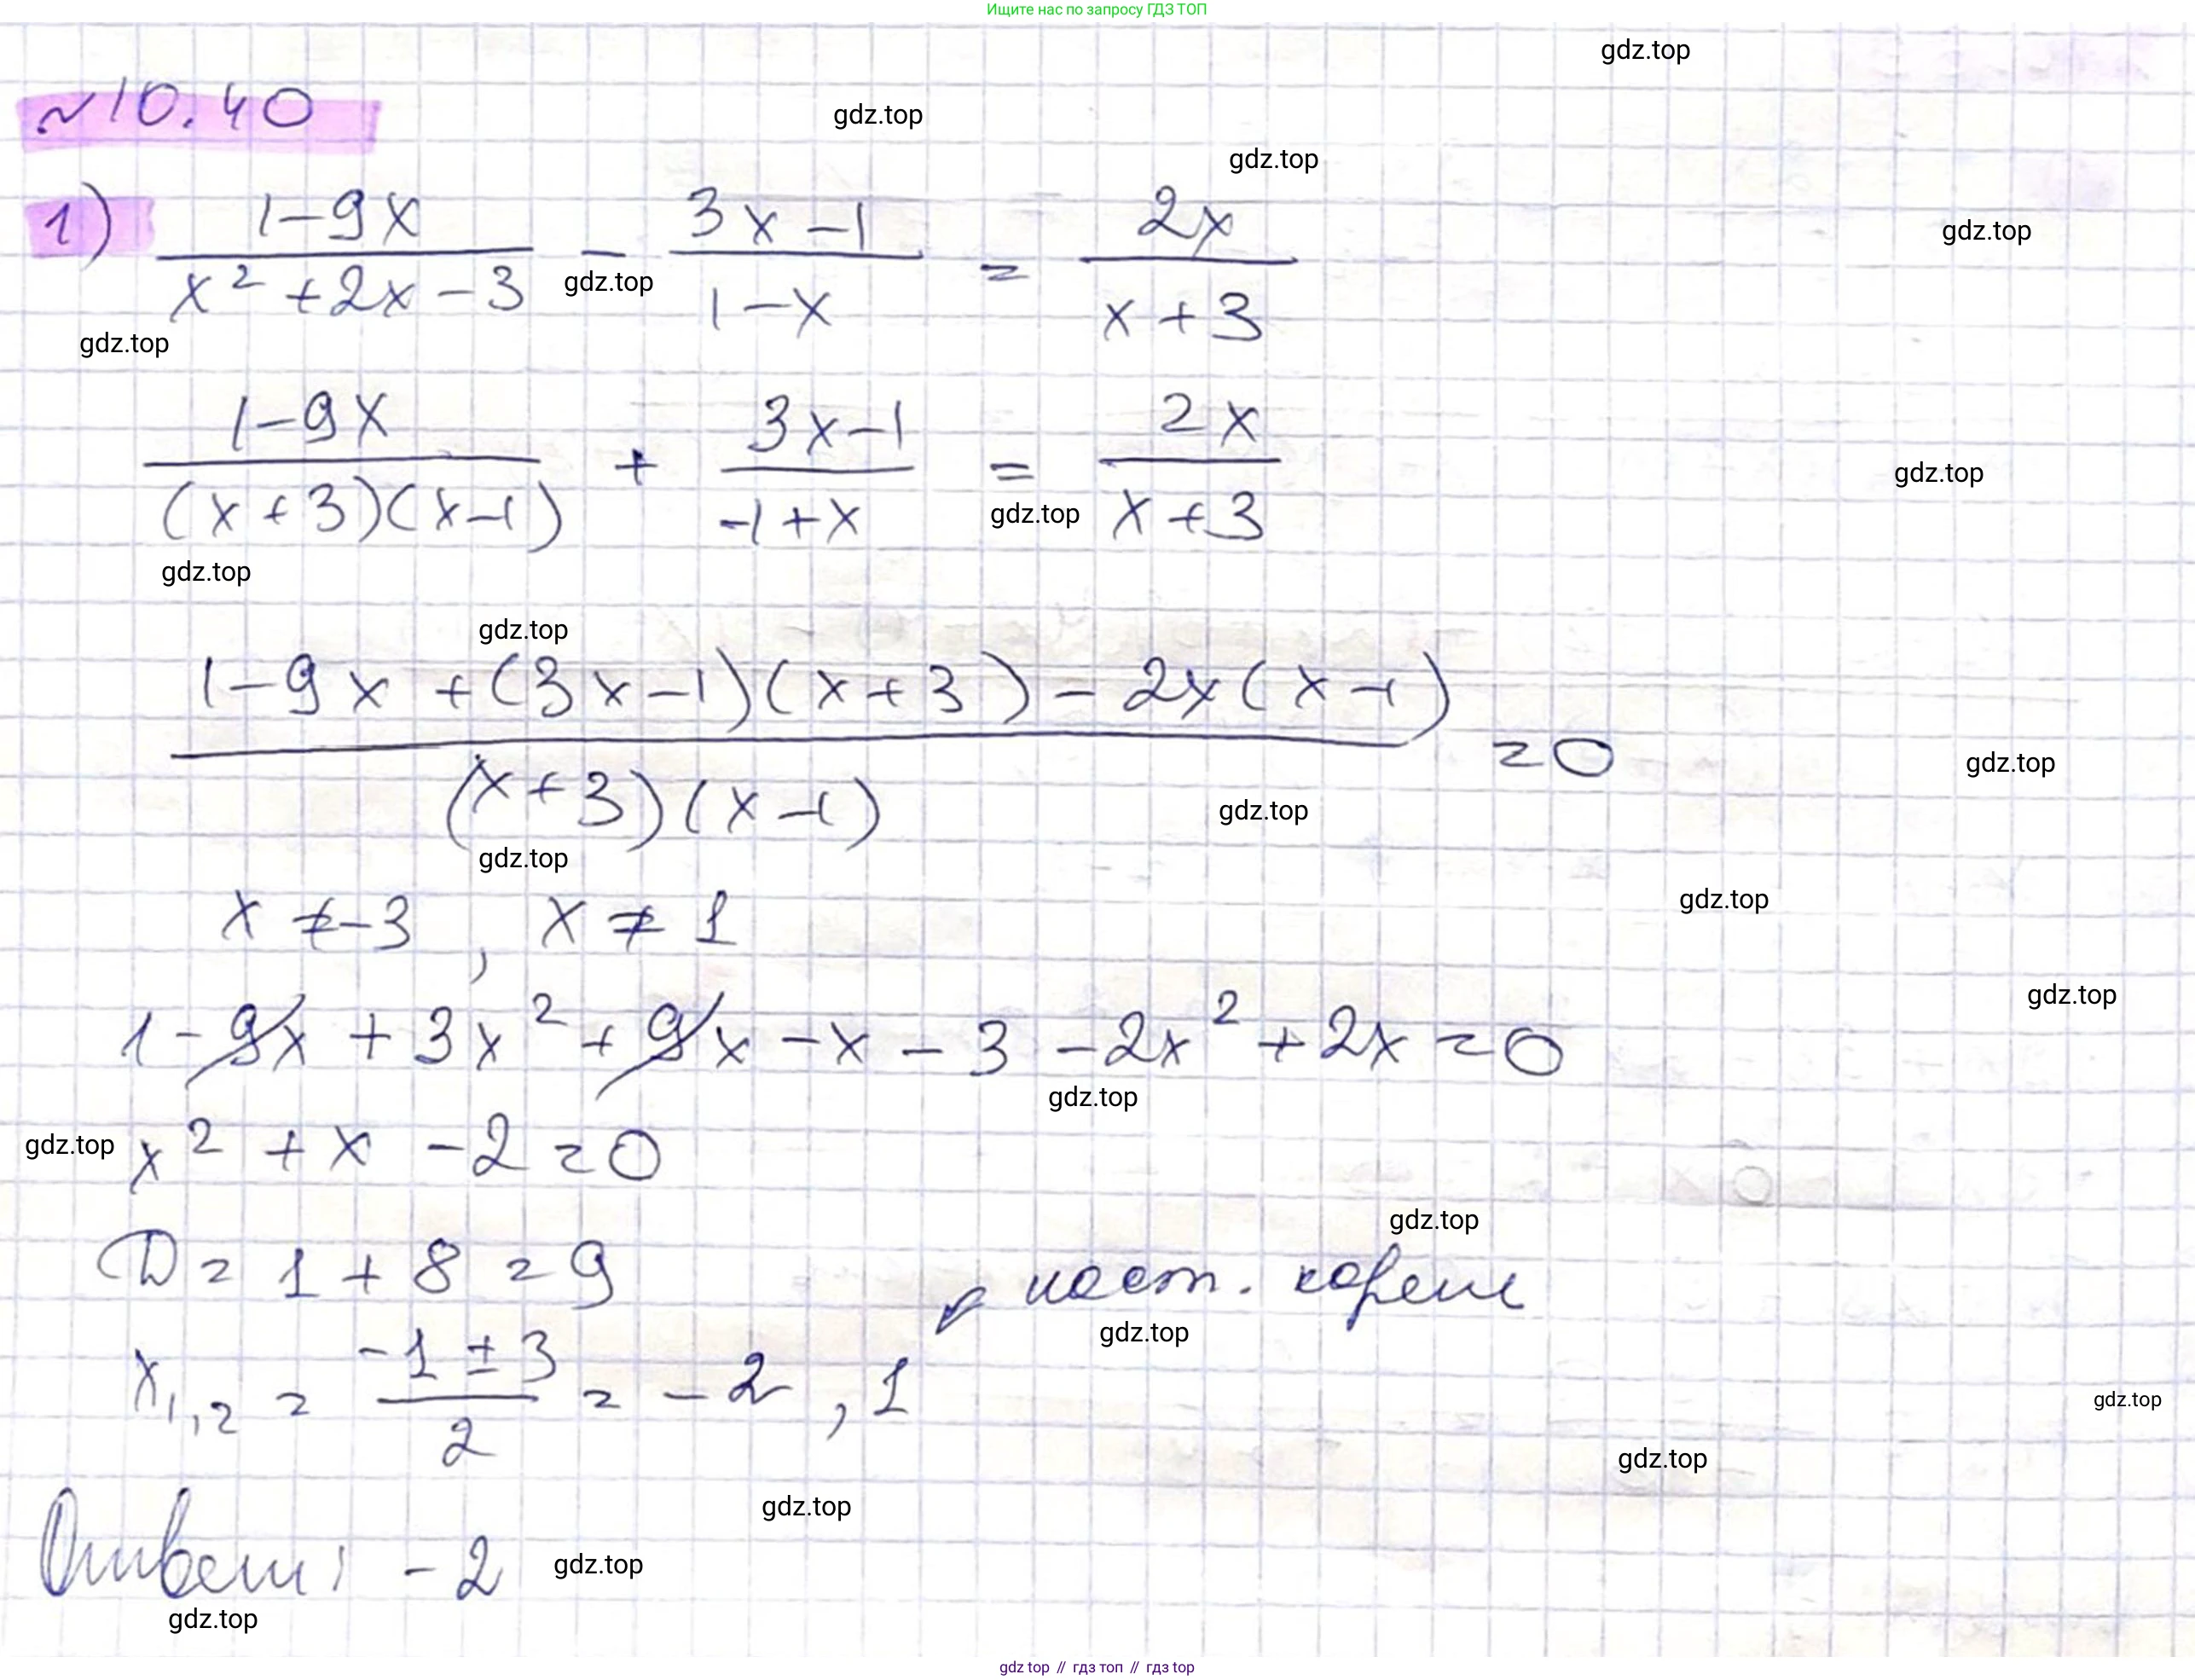 Ищите нас по запросу ГДЗ ТОП
gdz.top
№10.40
gdz.top
gdz.top
1) (1-9x)/(x² + 2x - 3) - (3x - 1)/(1 - x) = 2x/(x + 3)
gdz.top
gdz.top
gdz.top
(1-9x)/((x+3)(x-1)) + (3x-1)/(-1+x) = 2x/(x+3)
gdz.top
gdz.top
gdz.top
gdz.top
(1-9x + (3x-1)(x+3) - 2x(x-1))/((x+3)(x-1)) = 0
gdz.top
gdz.top
gdz.top
x ≠ -3, x ≠ 1
gdz.top
gdz.top
1 - 9x + 3x² + 9x - x - 3 - 2x² + 2x = 0
gdz.top
gdz.top
x² + x - 2 = 0
gdz.top
D = 1 + 8 = 9
пост. корень
gdz.top
x1,2 = (-1 ± 3)/2 = -2, 1
gdz.top
gdz.top
gdz.top
Ответ: -2
gdz.top
gdz.top
gdz top // гдз топ // гдз top